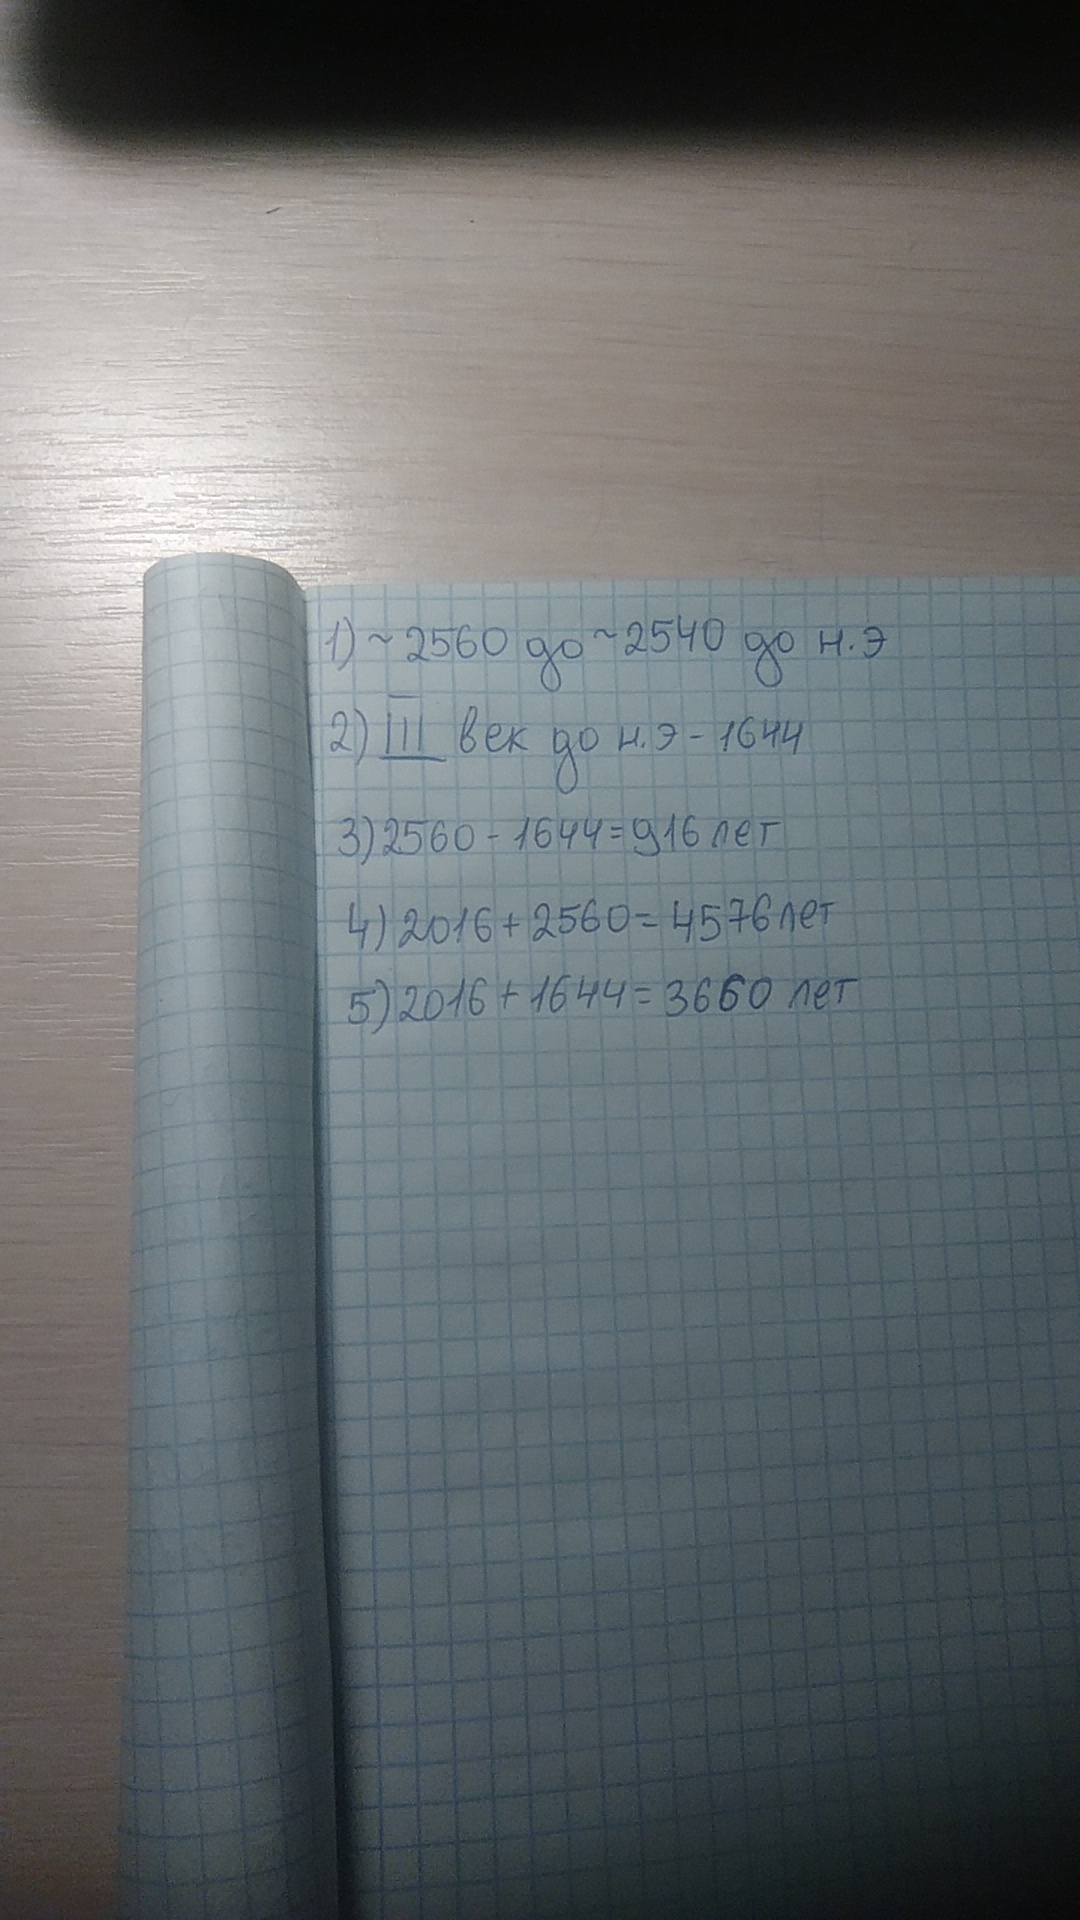 1) ~ 2560 до ~ 2540 до н.э
2) III век до н.э - 1644
3) 2560 - 1644 = 916 лет
4) 2016 + 2560 = 4576 лет
5) 2016 + 1644 = 3660 лет